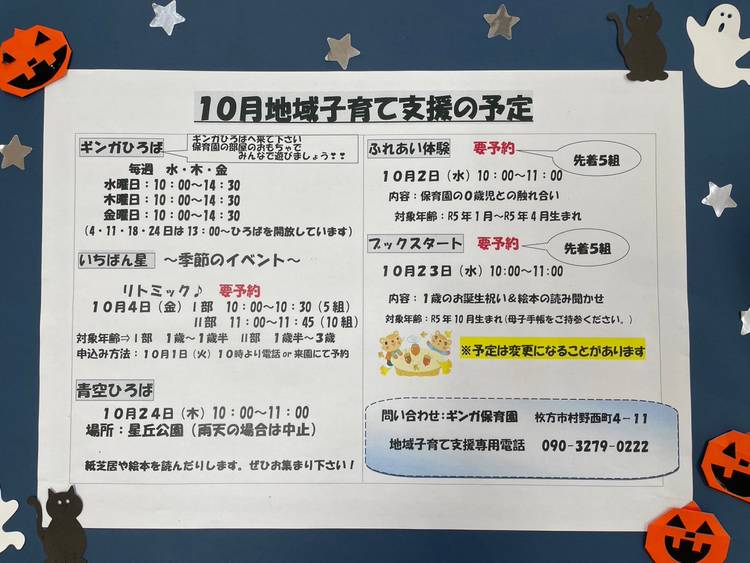 10月地域子育て支援の予定
ギンガひろば
ギンガひろばへ来て下さい
保育園の部屋のおもちゃで
みんなで遊びましょう❣❣
毎週　水・木・金
水曜日：10：00～14：30
木曜日：10：00～14：30
金曜日：10：00～14：30
（4・11・18・24日は13：00～ひろばを開放しています）
いちばん星　～季節のイベント～
リトミック♪　要予約
10月4日（金）Ⅰ部　10：00～10：30（5組）
Ⅱ部　11：00～11：45（10組）
対象年齢⇒Ⅰ部　1歳～1歳半　Ⅱ部　1歳半～3歳
申込み方法：10月1日（火）10時より電話or来園にて予約
青空ひろば
10月24日（木）10：00～11：00
場所：星丘公園（雨天の場合は中止）
紙芝居や絵本を読んだりします。ぜひお集まり下さい！
ふれあい体験　要予約
先着5組
10月2日（水）10：00～11：00
内容：保育園の0歳児との触れ合い
対象年齢：R5年1月～R5年4月生まれ
ブックスタート　要予約
先着5組
10月23日（水）10:00～11:00
内容：1歳のお誕生祝い＆絵本の読み聞かせ
対象年齢：R5年10月生まれ（母子手帳をご持参ください。）
※予定は変更になることがあります
問い合わせ：ギンガ保育園　枚方市村野西町4－11
地域子育て支援専用電話　090-3279-0222